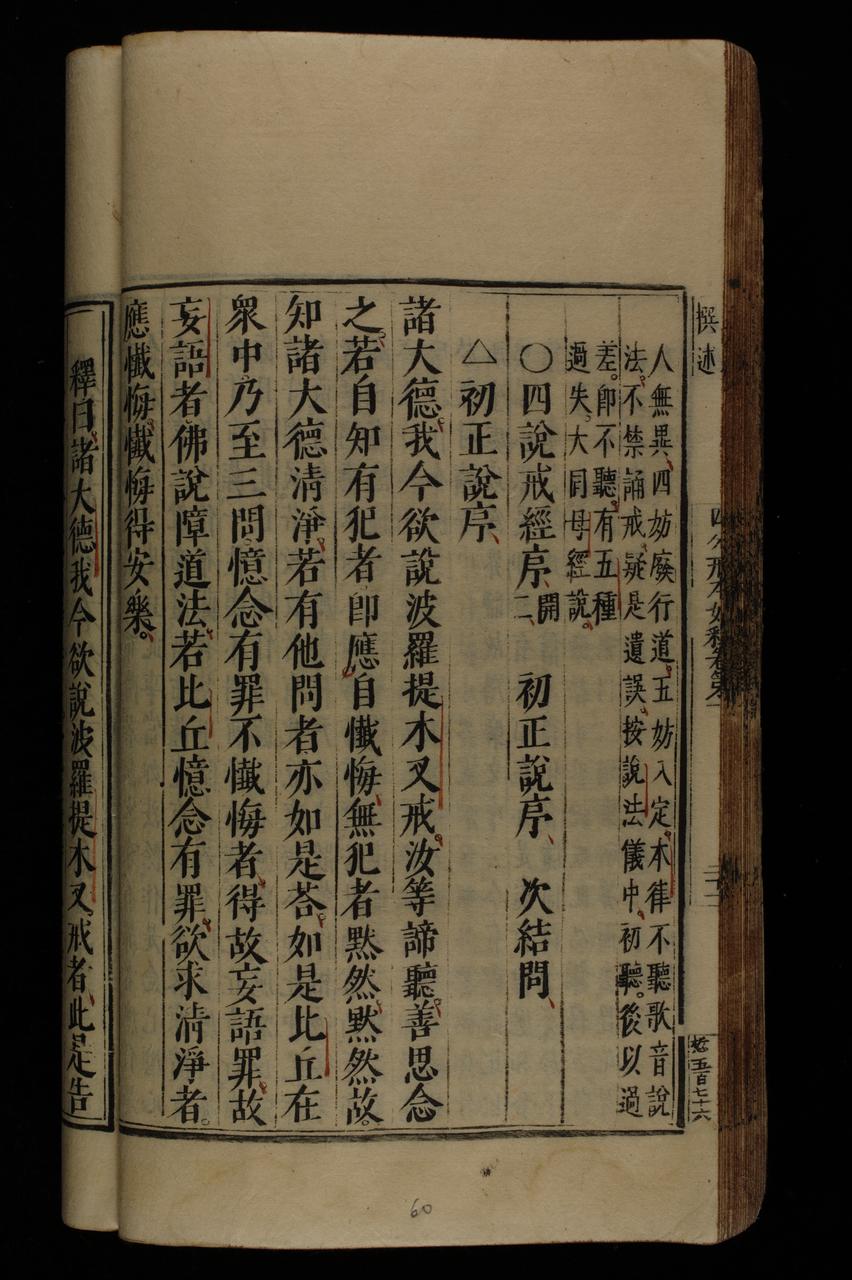 撰述
四分戒本如釋卷第一
人無異四妨廢行道五妨入定本律不聽歌音說
法不禁誦戒疑是遺誤按說法儀中初聽後以過
差即不聽有五種
過失大同母經說
○四說戒經序二開 初正說序 次結問
△初正說序
諸大德我今欲說波羅提木叉戒汝等諦聽善思念
之若自知有犯者即應自懺悔無犯者默然默然故
知諸大德清淨若有他問者亦如是荅如是比丘在
眾中乃至三問憶念有罪不懺悔者得故妄語罪故
妄語者佛說障道法若比丘憶念有罪欲求清淨者
應懺悔懺悔得安樂
釋曰諸大德我今欲說波羅提木叉戒者此是告
五百七十六
60